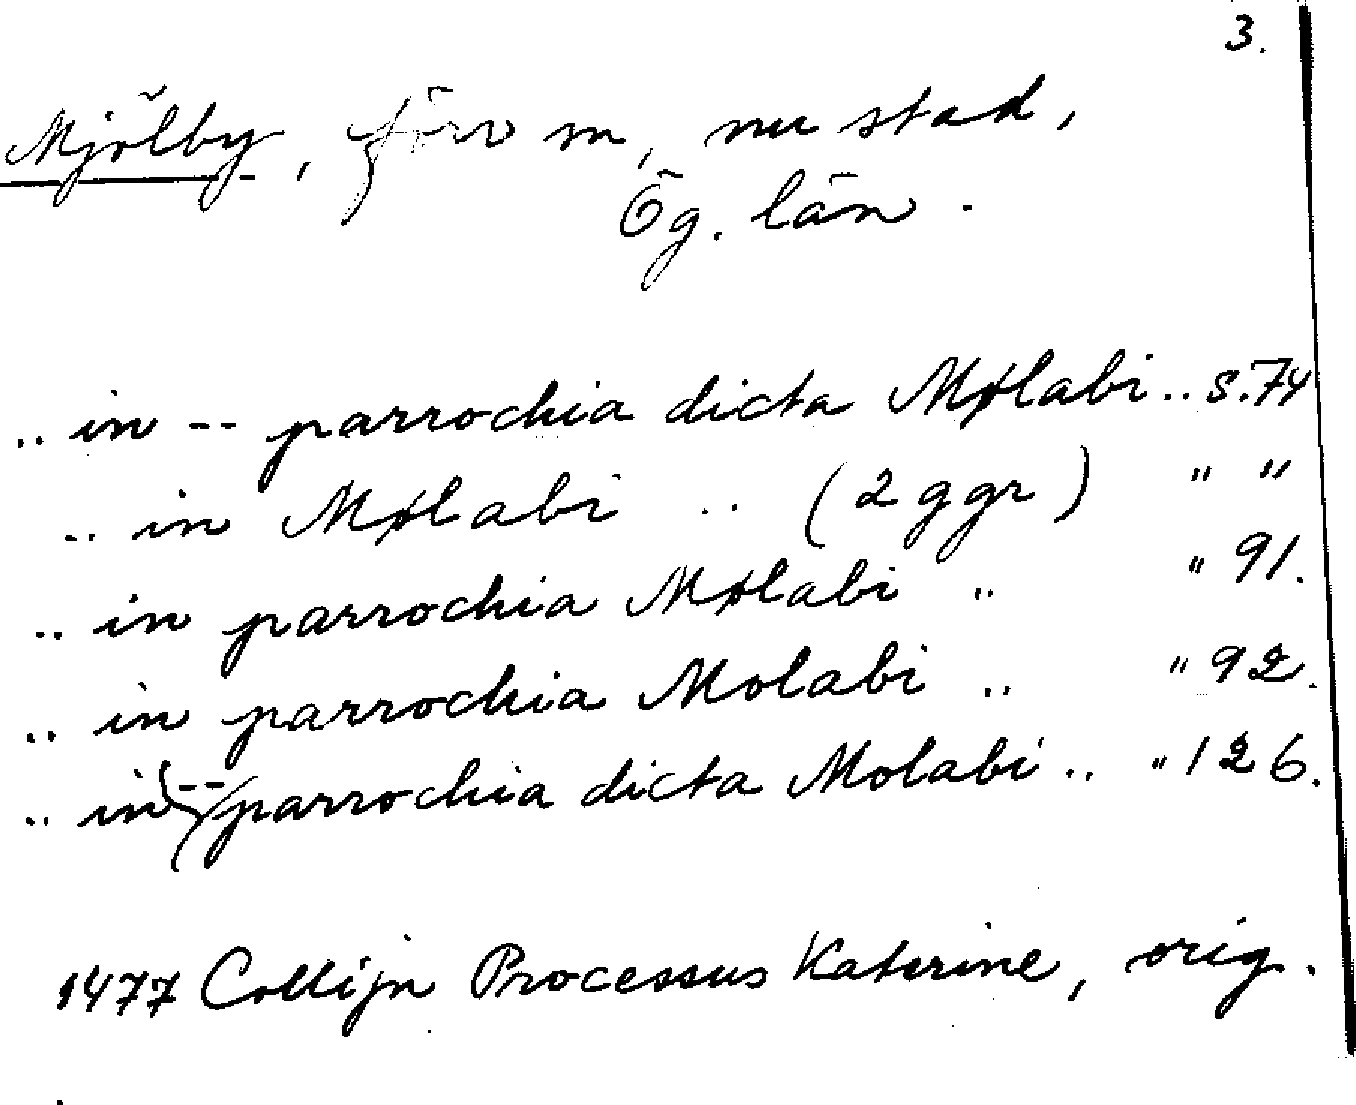 3.
Mjölby, förr sn, nu stad,
Ög. län.
.. in -- parrochia dicta Mølabi .. s. 74
.. in Mølabi .. (2 ggr) " "
.. in parrochia Mølabi .. " 91.
.. in parrochia Molabi .. " 92.
.. in -- parrochia dicta Molabi .. " 126.
1477 Collijn Processus Katerine, orig.